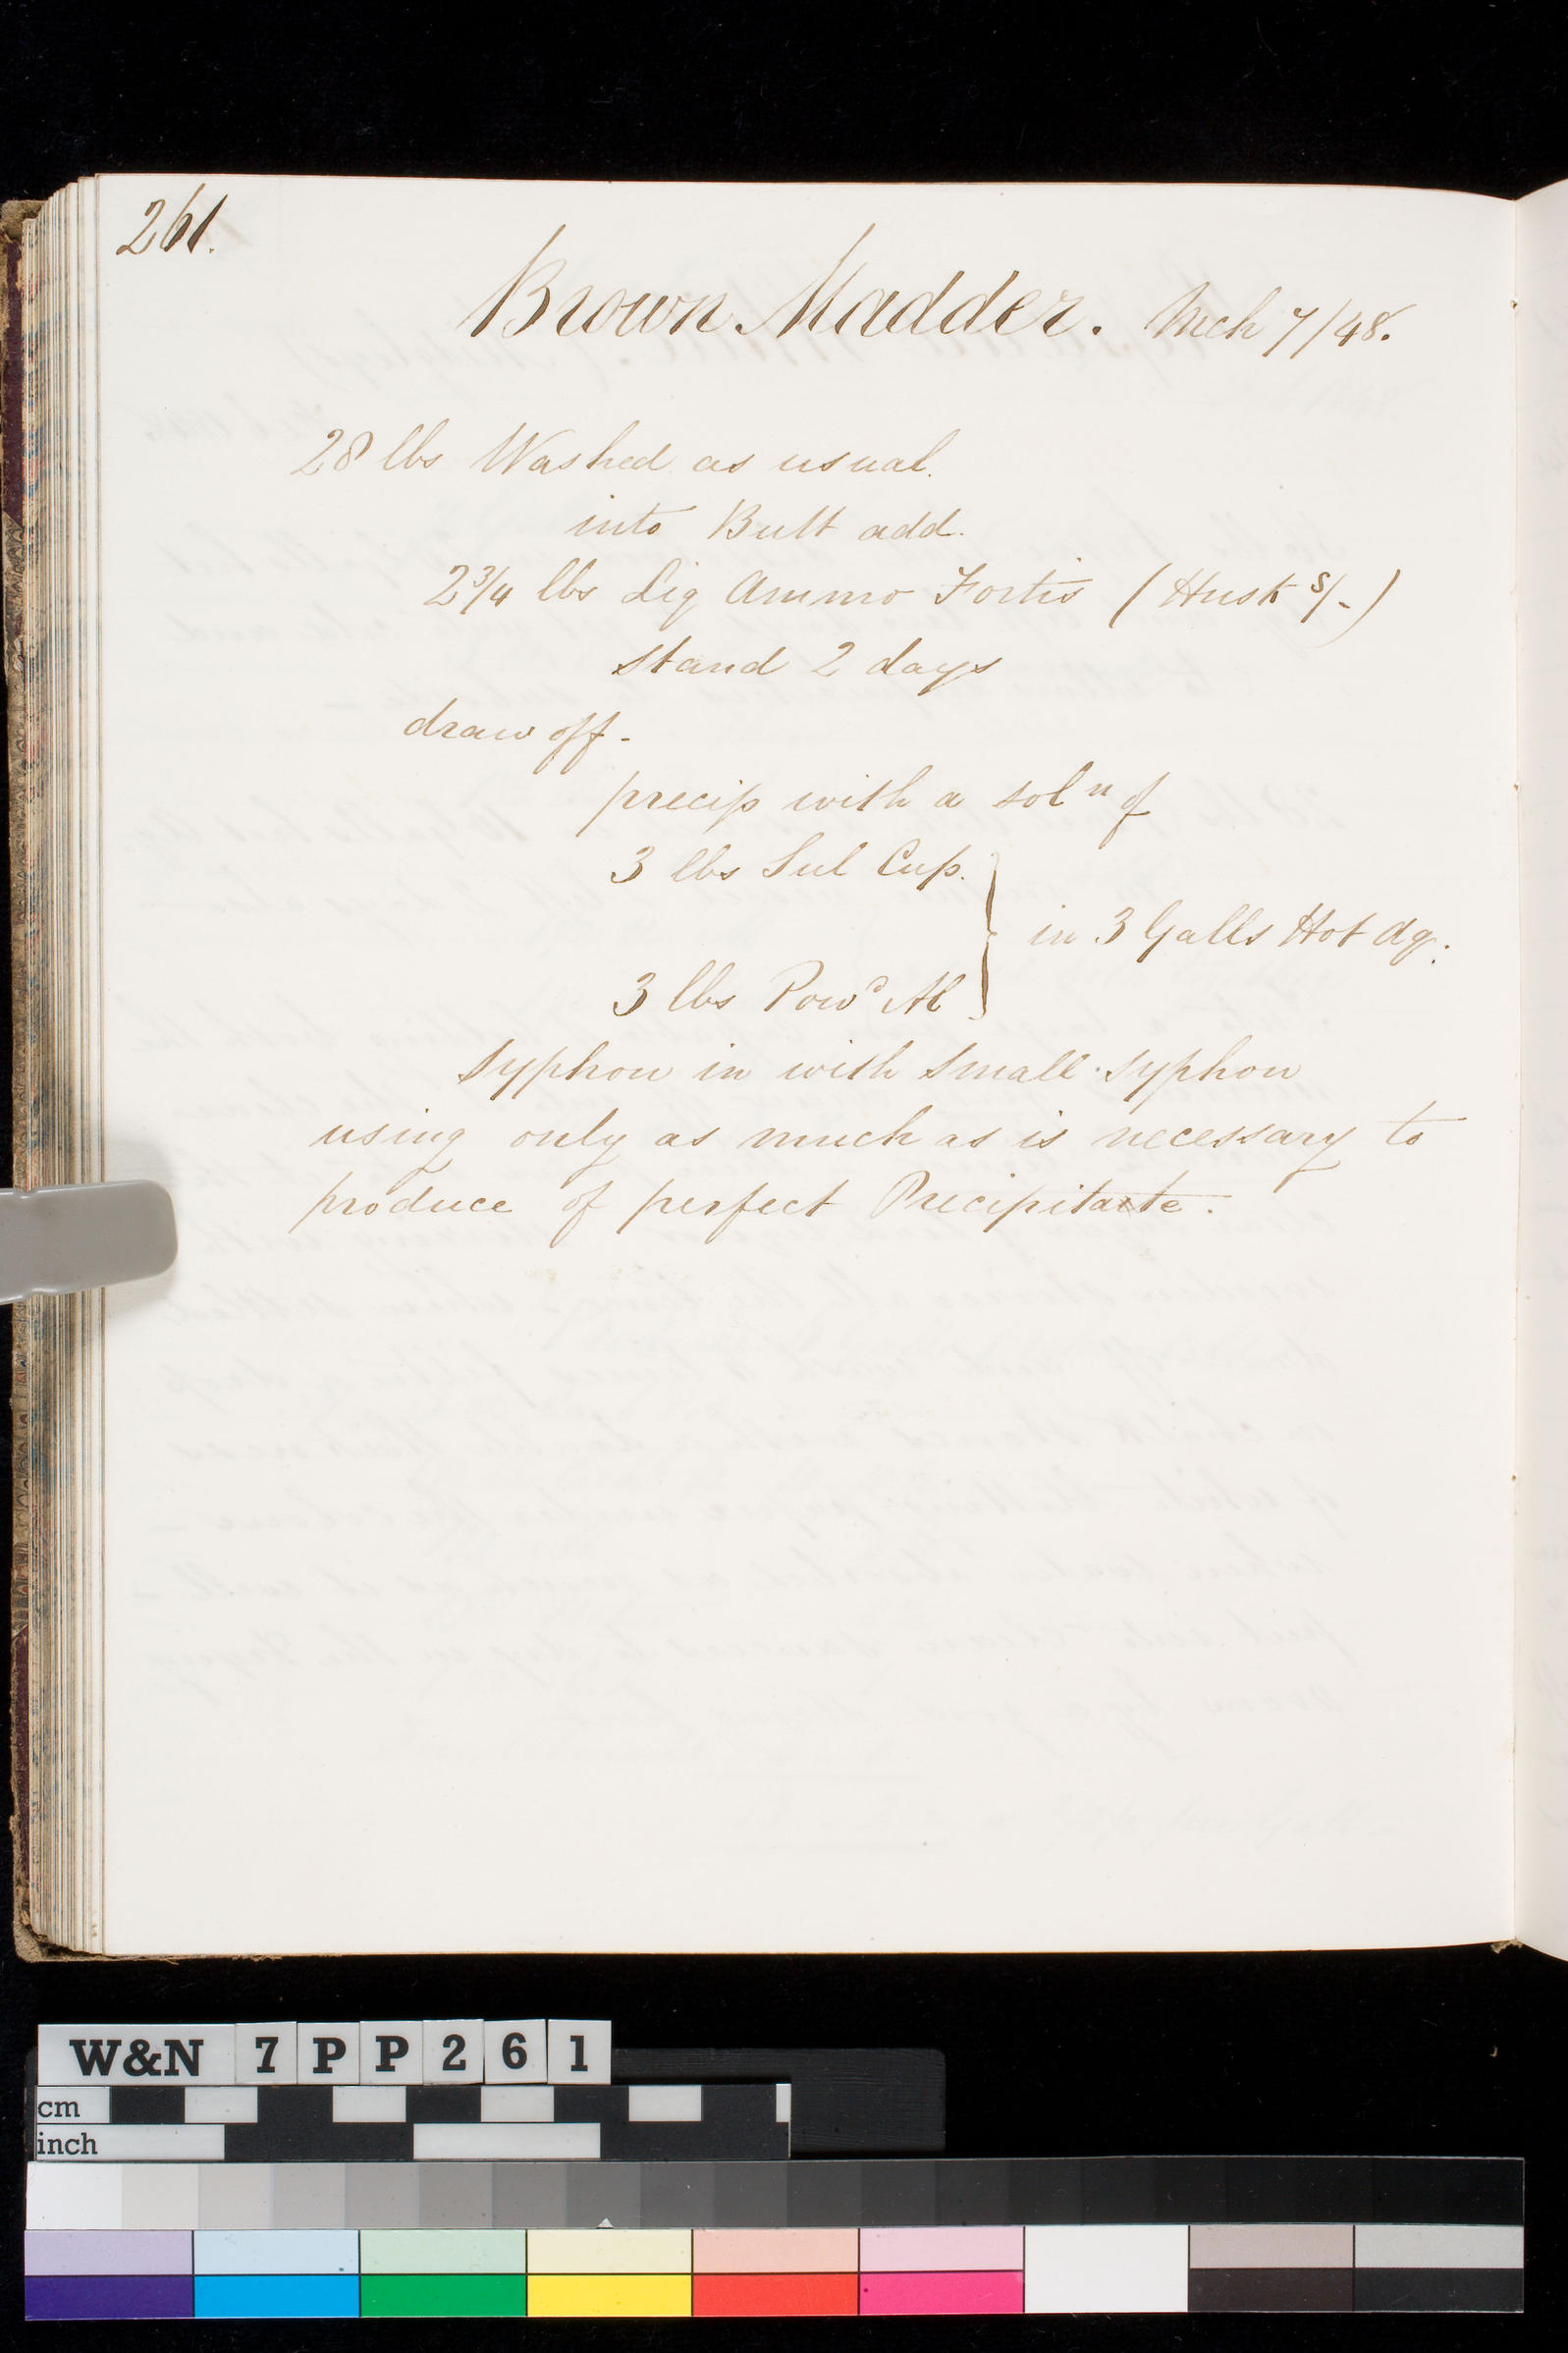 261.
Brown Madder. Mch 7/48.
28 lbs Washed as usual.
into Butt add.
2 3/4 lbs Liq Ammo Fortis (Husk s/-)
stand 2 days
draw off -
precip with a solⁿ of
3 lbs Sul Cup.
in 3 Galls Hot Aq.
3 lbs Powᵈ Al
Syphon in with small syphon
using only as much as is necessary to
produce of perfect Precipitate.
W&N 7PP261
cm
inch